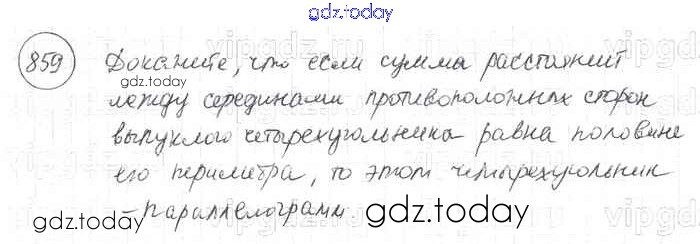 gdz.today
859 Докажите, что если сумма расстояний
между серединами противоположных сторон
выпуклого четырехугольника равна половине
его периметра, то этот четырехугольник
– параллелограмм.
gdz.today
gdz.today
gdz.today